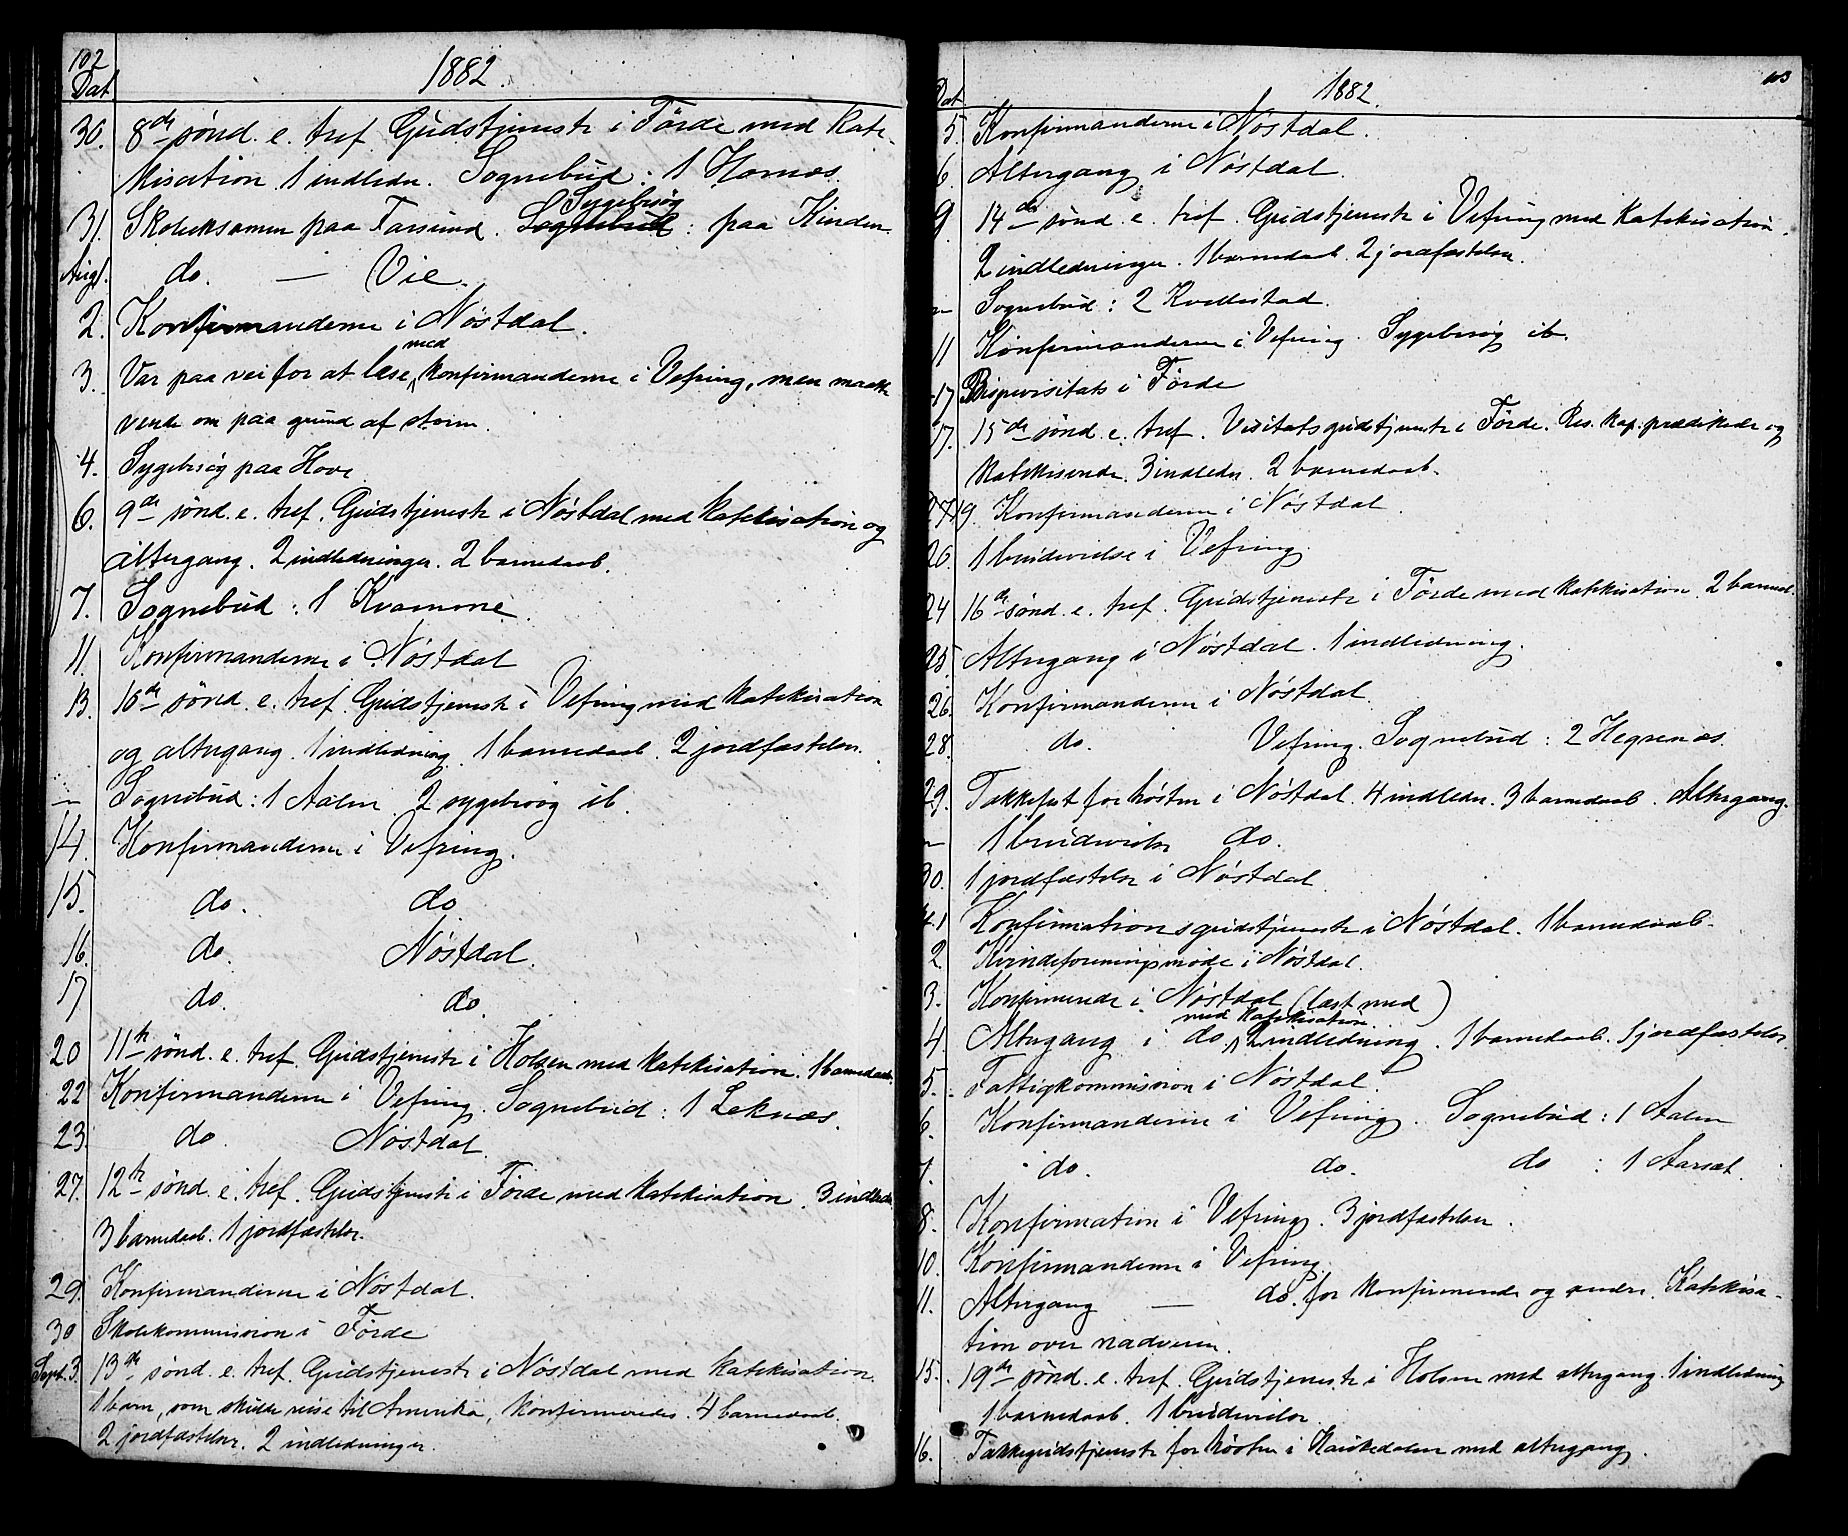 102
Dat
1882.
30. 8de sönd. e. tref. Gudstjeneste i Förde med kate-
kisation 1 indledn. Sognebud: 1 Hornæs
Sygebesög
31. Skoleksamen paa Farsund. Sognebud: paa Kinden.
Augt. do. — Vie.
2. Konfirmanderne i Nöstdal.
med
3. Var paa vei for at læse konfirmanderne i Vefring, men maatte
vende om paa grund af storm.
4. Sygebesög paa Hove
6. 9de sönd. e. tref. Gudstjeneste i Nöstdal med katekisation og
altergang. 2 indledninger. 2 barnedaab.
7. Sognebud: 1 Kvamme.
11. Konfirmanderne i Nöstdal
13. 10de sönd. e. tref. Gudstjeneste i Vefring med katekisation
og altergang. 1 indledning. 1 barnedaab. 2 jordfæstelser.
— Sognebud: 1 Aalen 2 sygebesög ib.
14. Konfirmanderne i Vefring.
15. do. do
16. do. Nöstdal.
17 do. do.
20 11te sönd. e. tref. Gudstjeneste i Holsen med katekisation. 1 barnedaab.
22 Konfirmanderne i Vefring. Sognebud: 1 Leknæs.
23 do. Nöstdal.
27. 12te sönd. e. tref. Gudstjeneste i Förde med katekisation. 3 indledn.
3 barnedaab. 1 jordfæstelse.
29. Konfirmanderne i Nöstdal.
30 Skolekommission i Förde
Sept. 3. 13de sönd. e. tref. Gudstjeneste i Nöstdal med katekisation.
1 barn, som skulde reise til Amerika, konfirmeredes. 4 barnedaab.
2 jordfæstelser. 2 indledninger.
103
Dat
1882.
5. Konfirmanderne i Nöstdal.
6. Altergang i Nöstdal.
9. 14de sönd. e. tref. Gudstjeneste i Vefring med katekisation.
2 indledninger. 1 barnedaab. 2 jordfæstelser.
— Sognebud: 2 Kvellestad.
11 Konfirmanderne i Vefring. Sygebesög ib.
-17 Bispevisitats i Förde
17. 15de sönd. e. tref. Visitatsgudstjeneste i Förde. Res. kap. prædikede og
katekiserede. 3 indledn. 2 barnedaab.
19. Konfirmanderne i Nöstdal.
20. 1 brudevielse i Vefring.
24 16de sönd. e. tref. Gudstjeneste i Förde med katekisation. 2 barned.
25. Altergang i Nöstdal. 1 indledning.
26. Konfirmanderne i Nöstdal.
28. do. Vefring. Sognebud: 2 Hegrenæs.
29. Takkefest for hösten i Nöstdal. 4 indledn. 3 barnedaab. Altergang.
— 1 brudevielse do.
30. 1 jordfæstelse i Nöstdal.
1 Konfirmationsgudstjeneste i Nöstdal. 1 barnedaab.
2. Kvindeforeningsmöde i Nöstdal.
3. Konfirmerede i Nöstdal (læst med)
med katekisation
4. Altergang i do. 2 indledning. 1 barnedaab. 1 jordfæstelse.
5. Fattigkommission i Nöstdal.
6. Konfirmanderne i Vefring. Sognebud: 1 Aalen
7. do. do. do : 1 Aarsæt.
8. Konfirmation i Vefring. 3 jordfæstelser.
10. Konfirmanderne i Vefring.
11. Altergang — do. for konfirmerede og andre. Katekisa-
tion over nadveren.
15. 19de sönd. e. tref. Gudstjeneste i Holsen med altergang. 1 indledning
1 barnedaab. 1 brudevielse.
16. Takkegudstjeneste for hösten i Haukedalen med altergang.